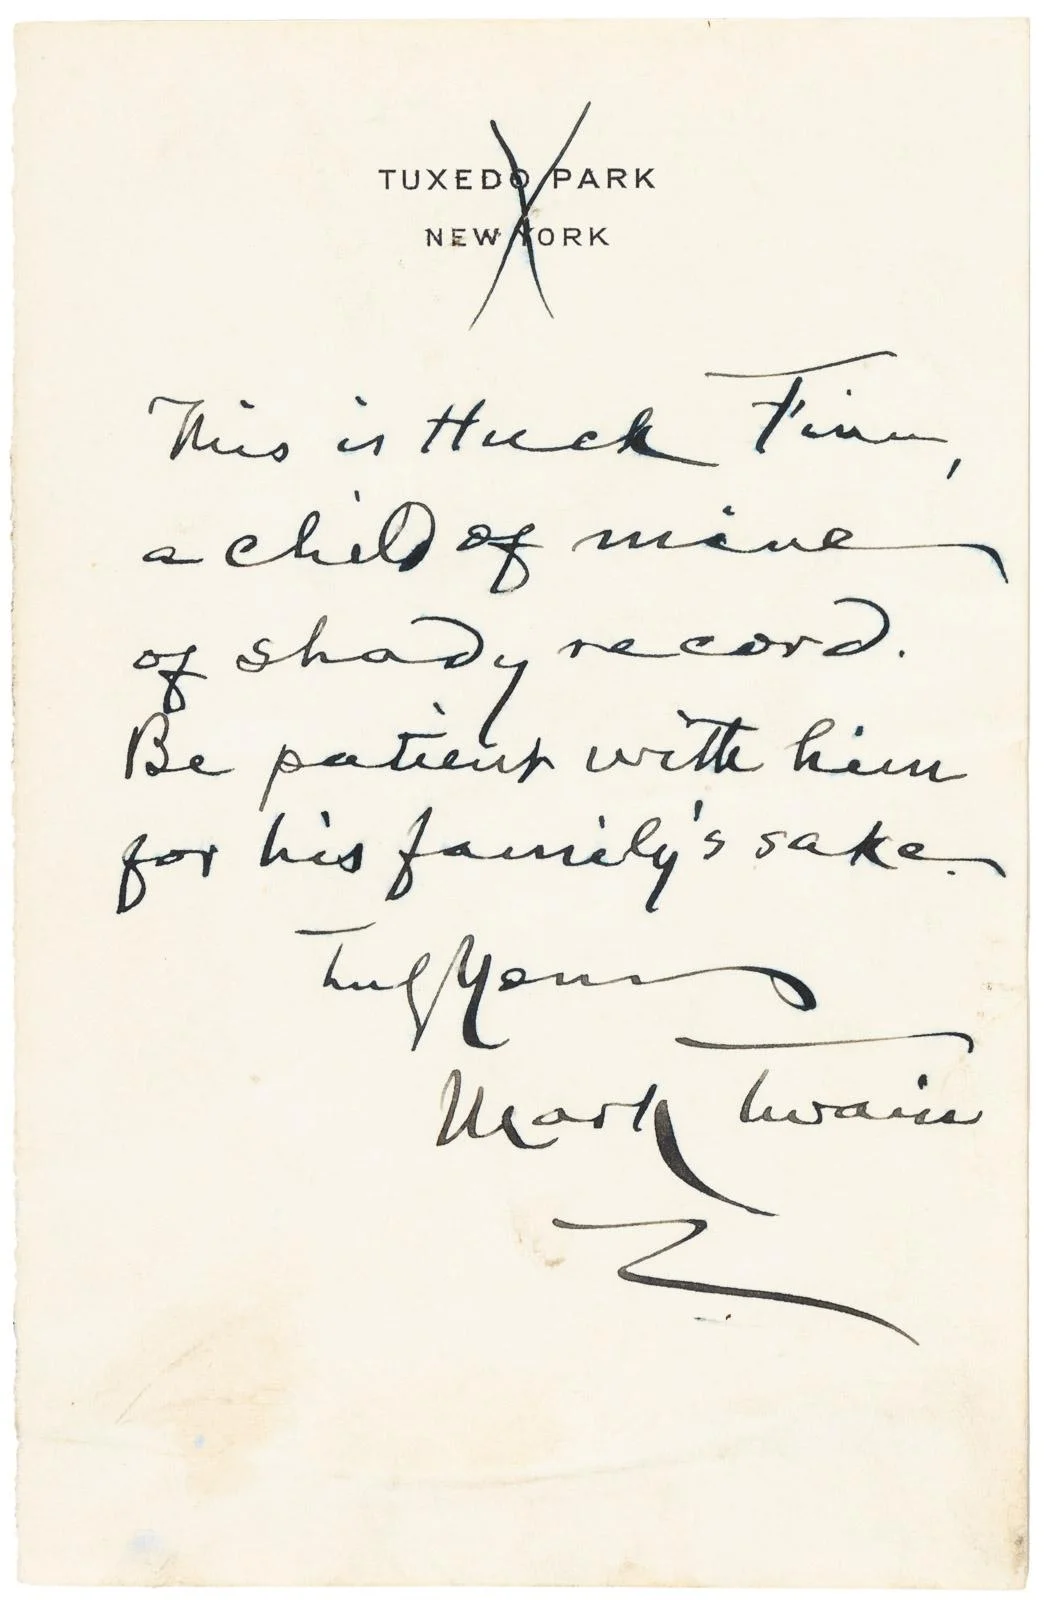 TUXEDO PARK
NEW YORK
This is Huck Finn,
a child of mine
of shady record.
Be patient with him
for his family's sake.
Truly Yours
Mark Twain